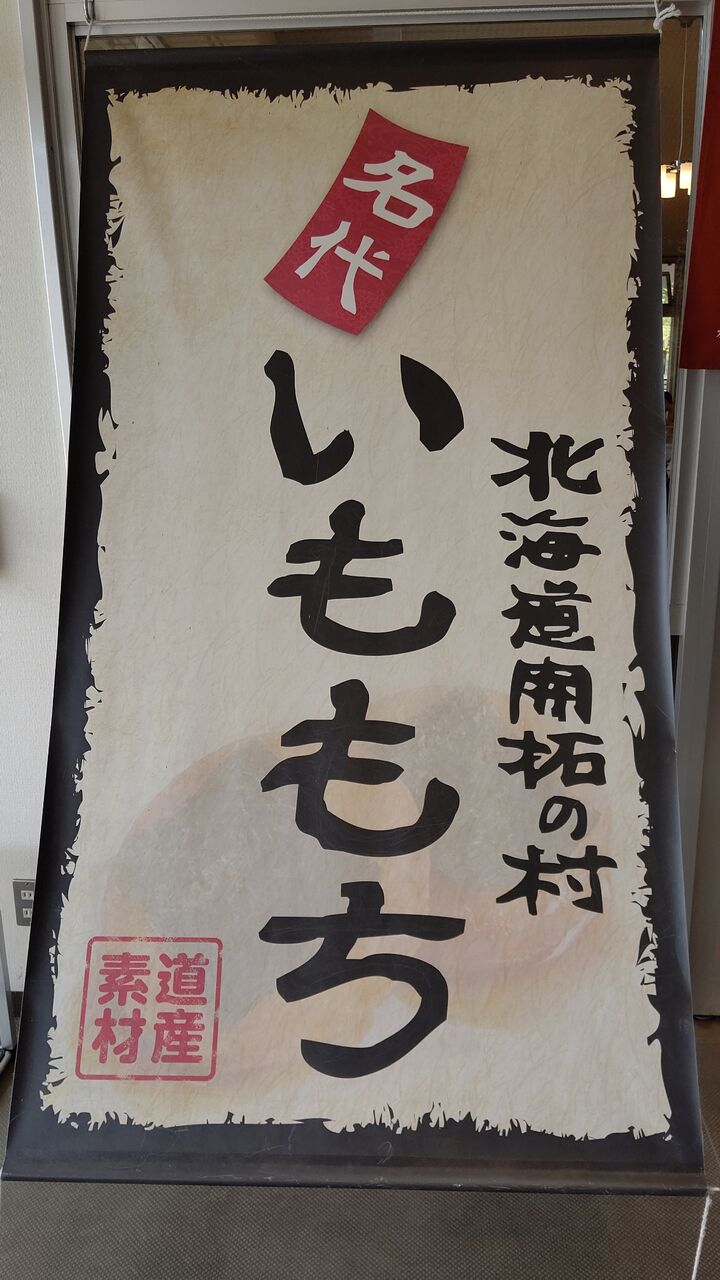 名代
北海道開拓の村
いももち
道産
素材